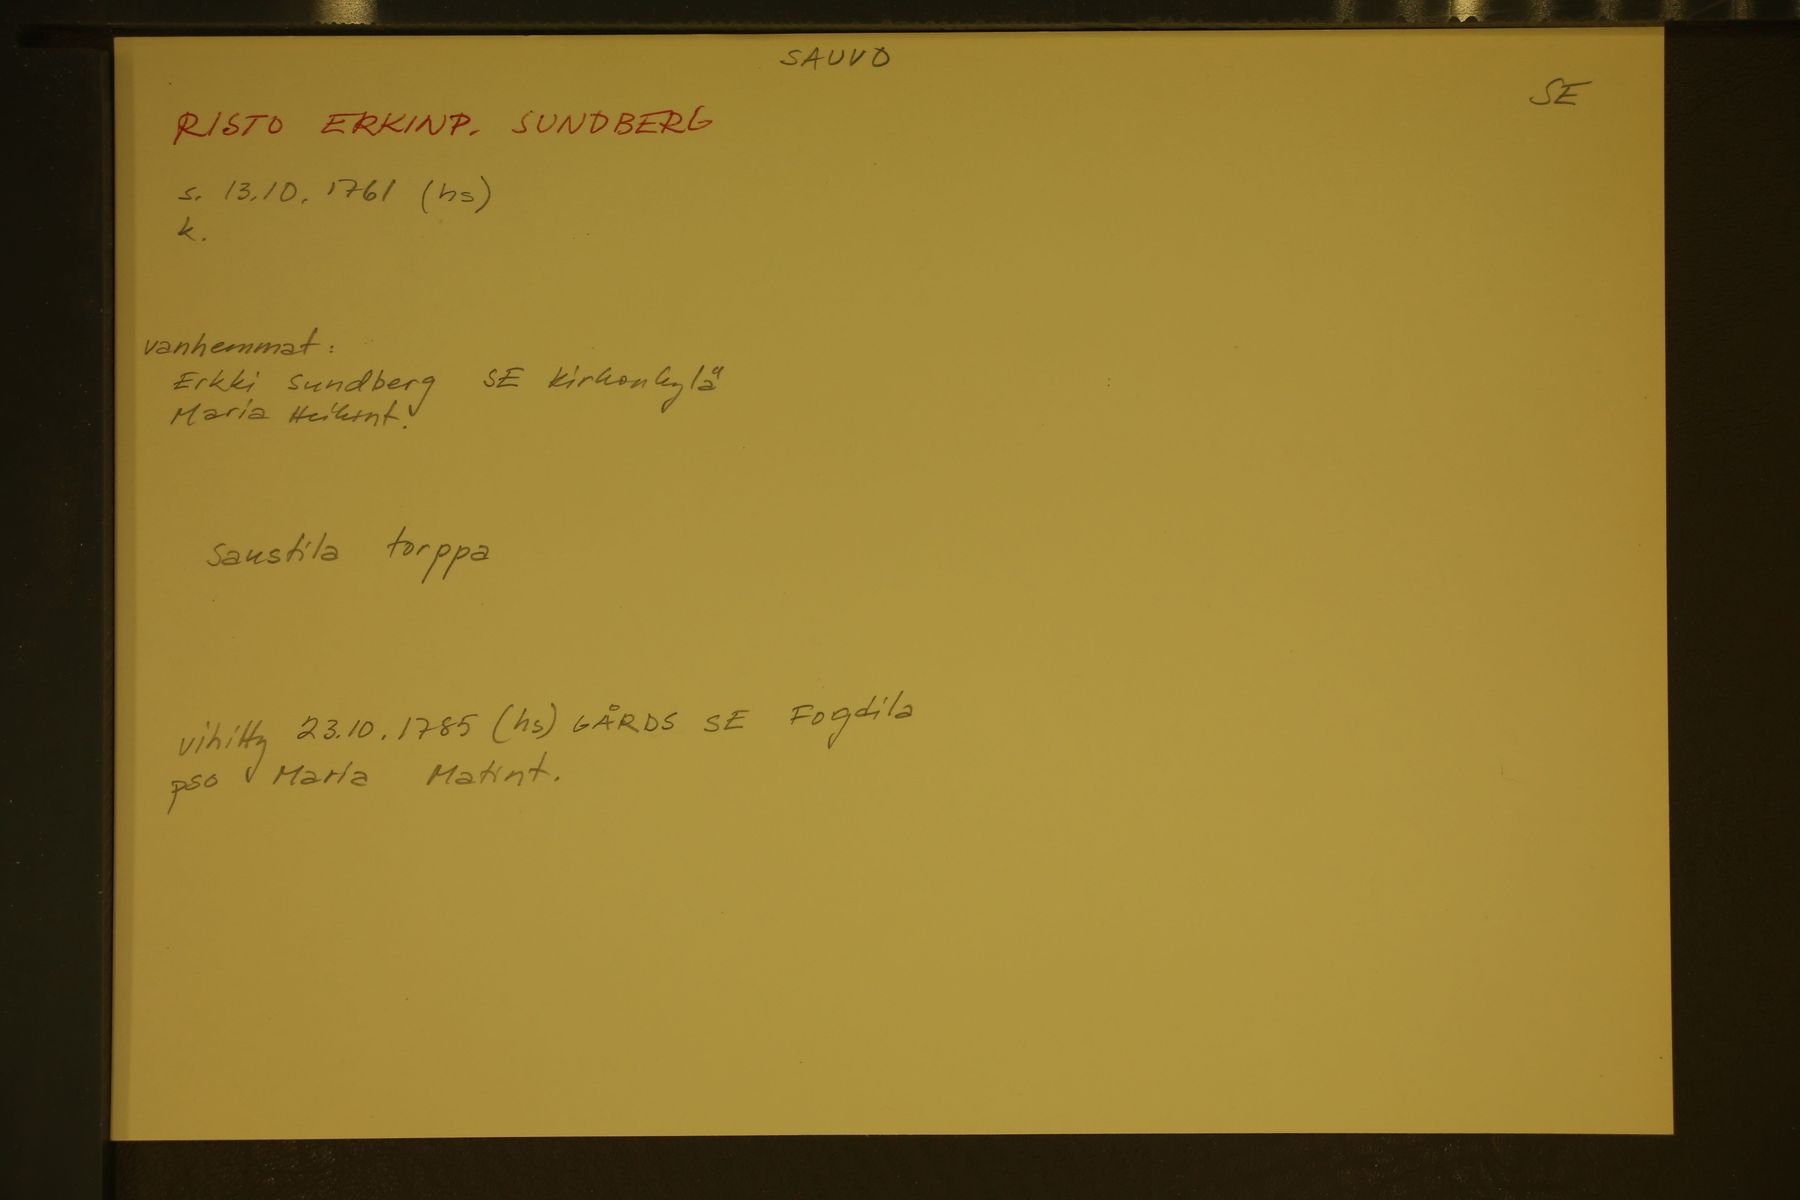 SAUVO
SE
RISTO ERKINP. SUNDBERG
s. 13.10.1761 (hs)
k.
vanhemmat:
Erkki Sundberg SE kirkonkylä
Maria Heikint.
Saustila torppa
vihitty 23.10.1785 (hs) GÅRDS SE Fogdila
pso Maria Matint.